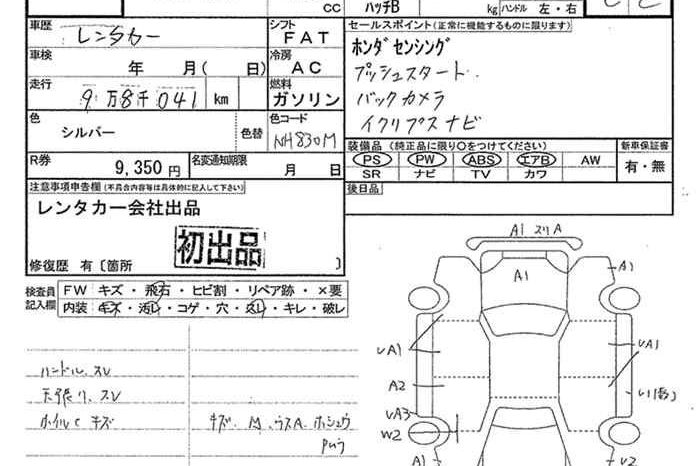 CC
ハッチB
kg
ハンドル 左・右
車歴
レンタカー
シフト
FAT
セールスポイント(正常に機能するものに限ります)
ホンダセンシング
プッシュスタート
バックカメラ
イクリプスナビ
車検
年 月( 日)
冷房
AC
走行
9万8千041 km
燃料
ガソリン
色
シルバー
色替
色コード
NH830M
装備品(純正品に限り○をつけてください)
PS PW ABS エアB AW
SR ナビ TV カワ
新車保証書
有・無
R券
9,350 円
名変通知期限
月 日
後日品
注意事項申告欄(不具合内容等は具体的に記入して下さい)
レンタカー会社出品
初出品
修復歴 有〔箇所 〕
検査員
記入欄
FW キズ・飛石・ヒビ割・リペア跡・×要
内装 キズ・汚レ・コゲ・穴・スレ・キレ・破レ
ハンドル、スレ
天張り、スレ
ホイルC キズ
キズ、M、ウスA、ホシュウ
A1 スリA
A1
A1
UA1
UA1
A2
UA3
W2
A1
U2